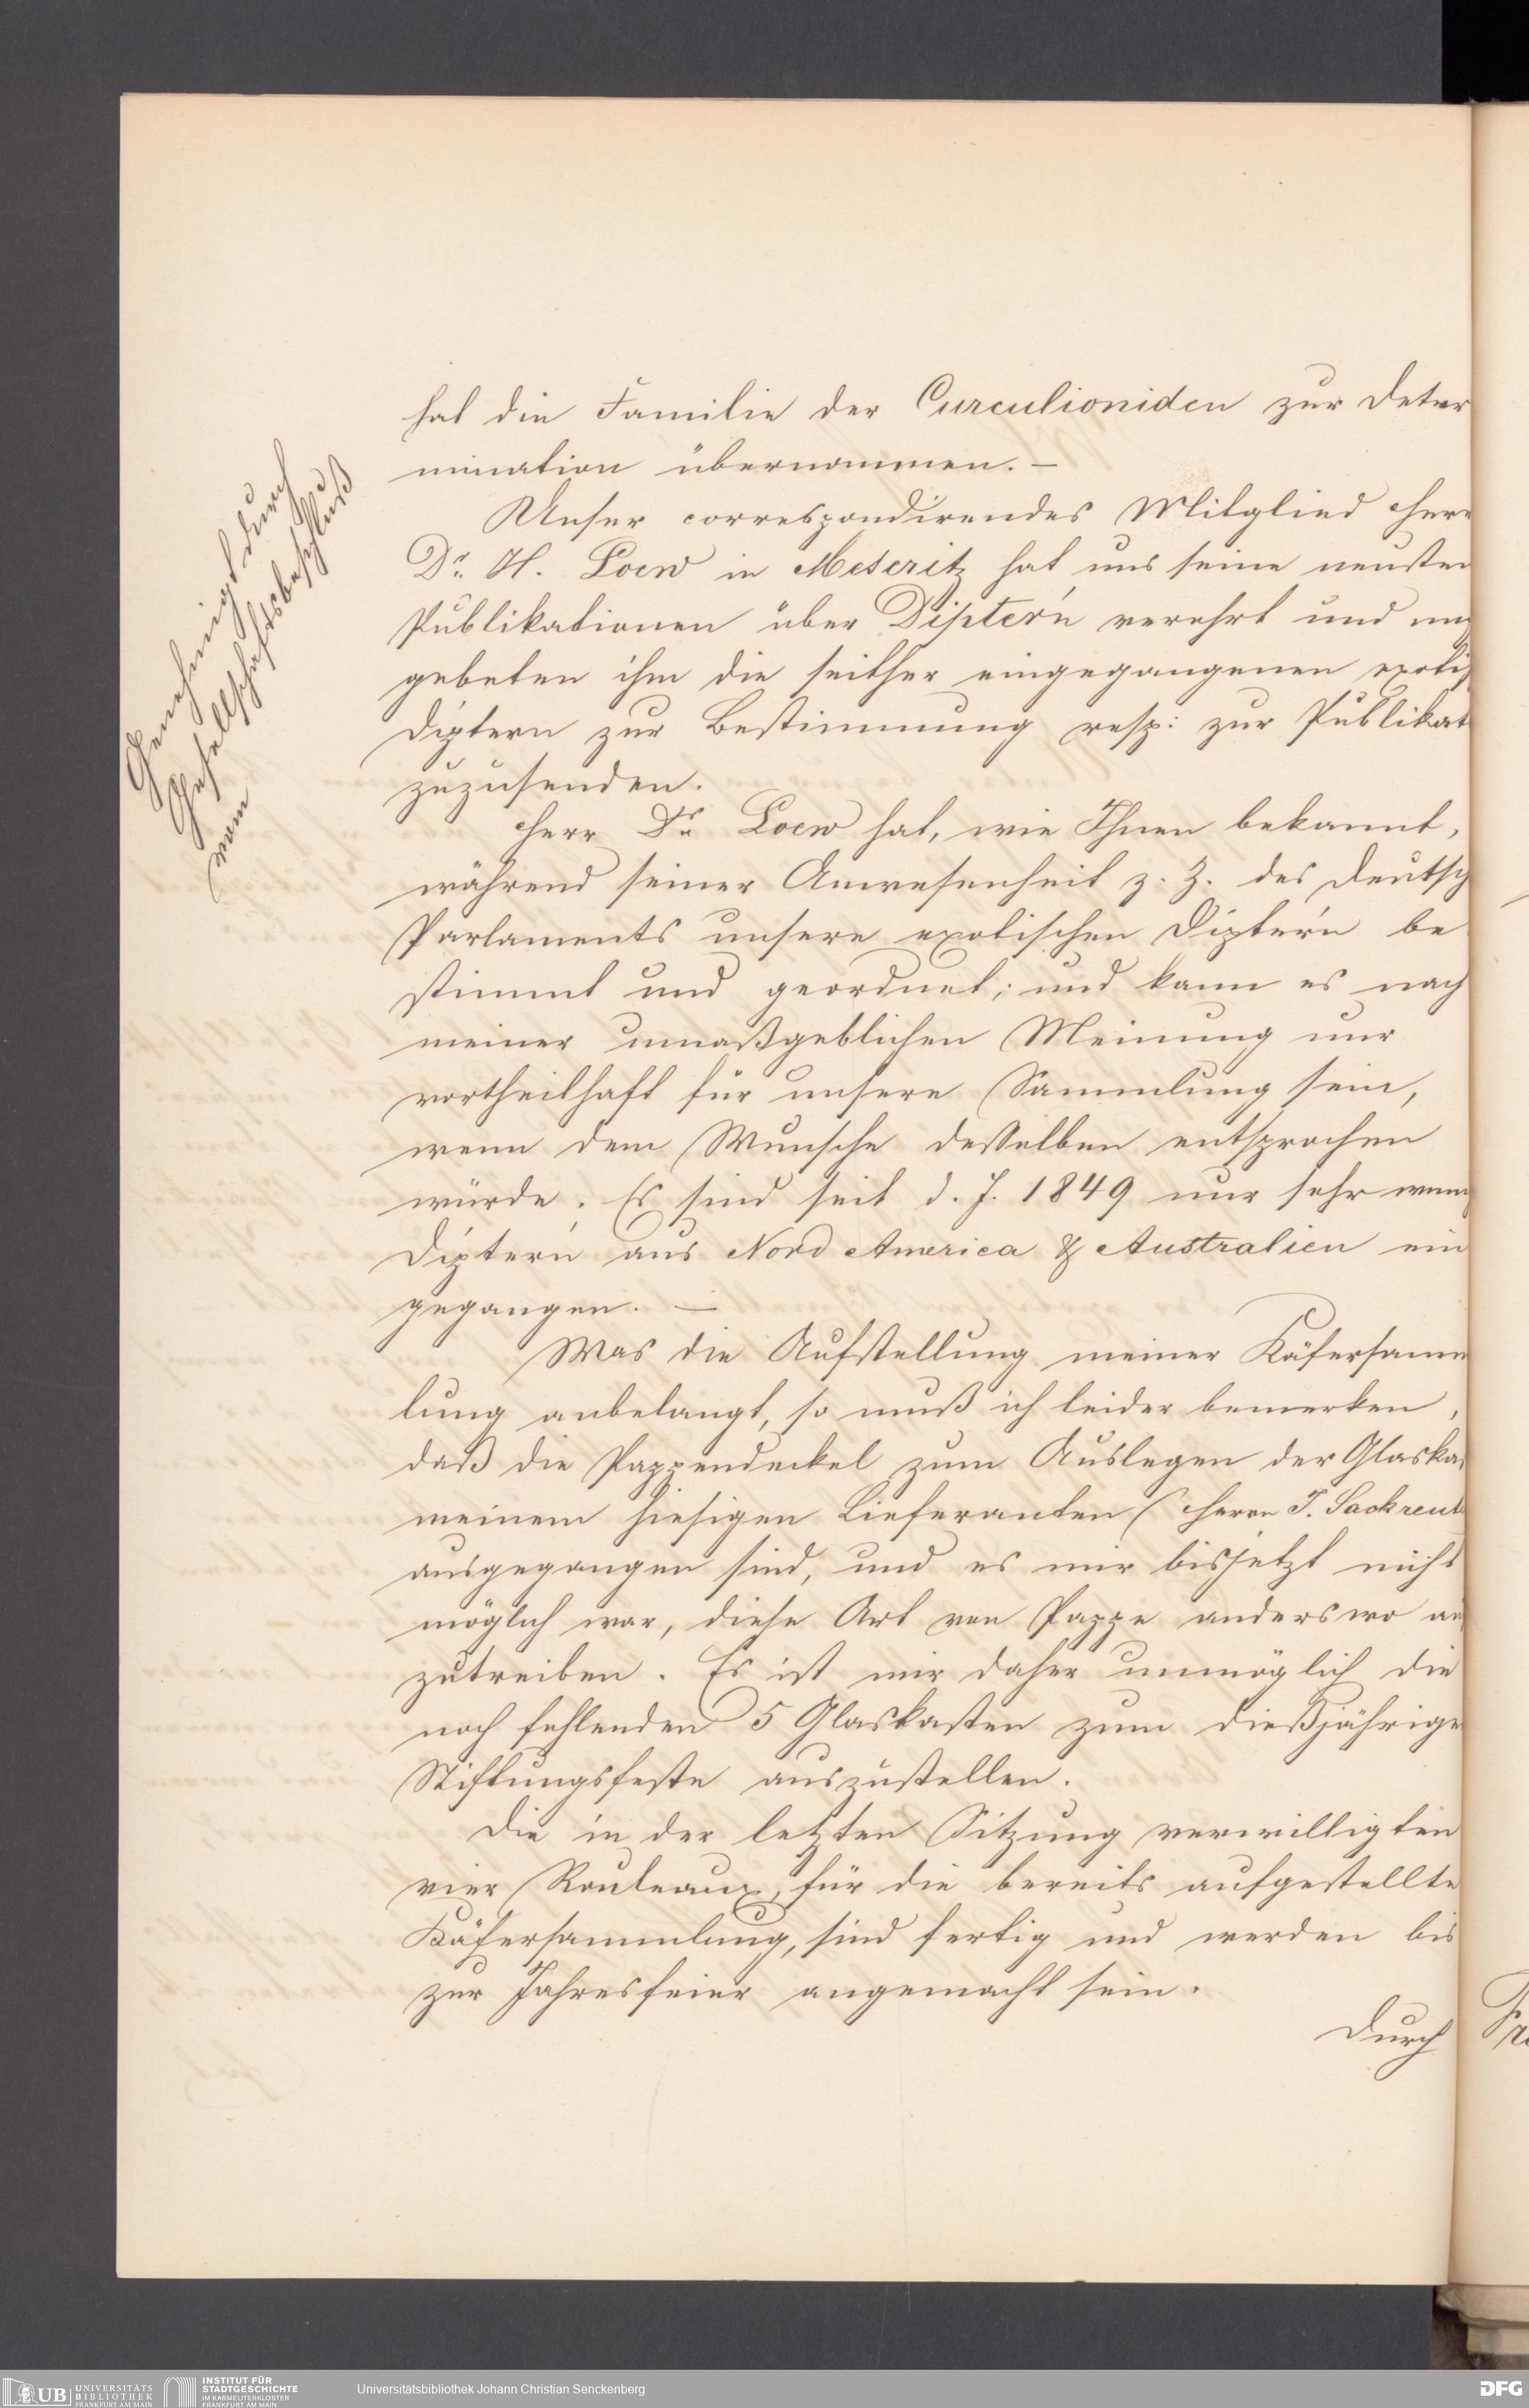 Genehmigt durch
Gesellschaftsbeschluß
vom
hat die Familie der Curculioniden zur Deter
mination übernommen. —
Unser correspondirendes Mitglied Herr
Dr. H. Loew in Meseritz hat uns seine neusten
Publikationen über Diptern verehrt und
gebeten ihm die seither eingegangenen exotis
Diptern zur Bestimmung resp: zur Publikat
zuzusenden.
Herr Dr. Loew hat, wie Ihnen bekannt,
während seiner Anwesenheit z. Z. des Deutsch
Parlaments unsere exotischen Diptern be
stimmt und geordnet; und kann es nach
meiner unmaßgeblichen Meinung nur
vortheilhaft für unsere Sammlung sein,
wenn dem Wunsche desselben entsprochen
würde. Es sind seit d. J. 1849 nur sehr wenig
Diptern aus Nord America & Australien ein
gegangen. —
Was die Aufstellung meiner Käfersamm
lung anbelangt, so muß ich leider bemerken,
daß die Pappendeckel zum Auslegen der Glaska
meinem hiesigen Lieferanten (Herrn J. Sackreut
ausgegangen sind, und es mir bisjetzt nicht
möglich war, diese Art von Pappe anderswo auf
zutreiben. Es ist mir daher unmöglich die
noch fehlenden 5 Glaskasten zum dießjährige
Stiftungsfeste auszustellen.
Die in der letzten Sitzung verwilligten
vier Rouleaux, für die bereits aufgestellte
Käfersammlung, sind fertig und werden bis
zur Jahresfeier angemacht sein.
Durch
UB UNIVERSITÄTS
BIBLIOTHEK
FRANKFURT AM MAIN
INSTITUT FÜR
STADTGESCHICHTE
IM KARMELITERKLOSTER
FRANKFURT AM MAIN
Universitätsbibliothek Johann Christian Senckenberg
DFG